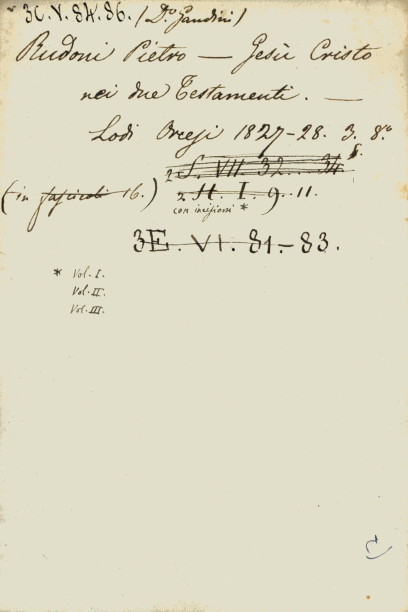 3C.V.84.86. (Do Gandini)
Rudoni Pietro — Gesù Cristo
nei due Testamenti. —
Lodi Orcesi 1827-28. 3. 8.o
2 S. VII. 32...34
(in fascicoli 16.) 2. H. I. 9..11.
con incisioni *
3E. VI. 81.-83.
* Vol. I.
Vol. II.
Vol. III.